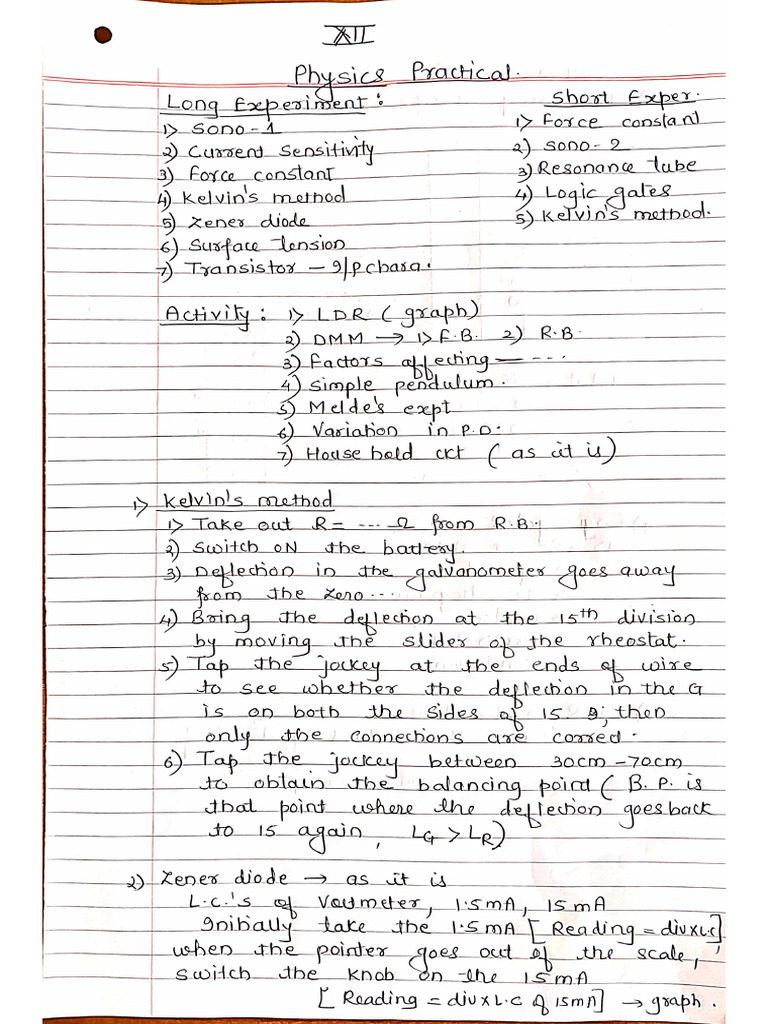 XII
Physics Practical.
Long Experiment:
1) Sono-1
2) Current Sensitivity
3) Force constant
4) Kelvin's method
5) Zener diode
6) Surface tension
7) Transistor – I/P chara.
Short Exper.
1) Force constant
2) Sono-2
3) Resonance tube
4) Logic gates
5) Kelvin's method.
Activity: 1) LDR (graph)
2) DMM → 1) F.B. 2) R.B.
3) Factors affecting — ....
4) Simple pendulum.
5) Melde's expt
6) Variation in P.D.
7) House hold ckt (as it is)
1) Kelvin's method
1) Take out R = ... Ω from R.B.
2) Switch ON the battery.
3) Deflection in the galvanometer goes away
from the zero...
4) Bring the deflection at the 15th division
by moving the slider of the rheostat.
5) Tap the jockey at the ends of wire
to see whether the deflection in the G
is on both the sides of 15. If; then
only the connections are correct.
6) Tap the jockey between 30cm-70cm
to obtain the balancing point (B.P. is
that point where the deflection goes back
to 15 again, LG > LR)
2) Zener diode → as it is
L.C.'s of Voltmeter, 1.5mA, 15mA
Initially take the 1.5mA [Reading = div x L.C]
when the pointer goes out of the scale,
switch the knob on the 15mA
[Reading = div x L.C of 15mA] → graph.